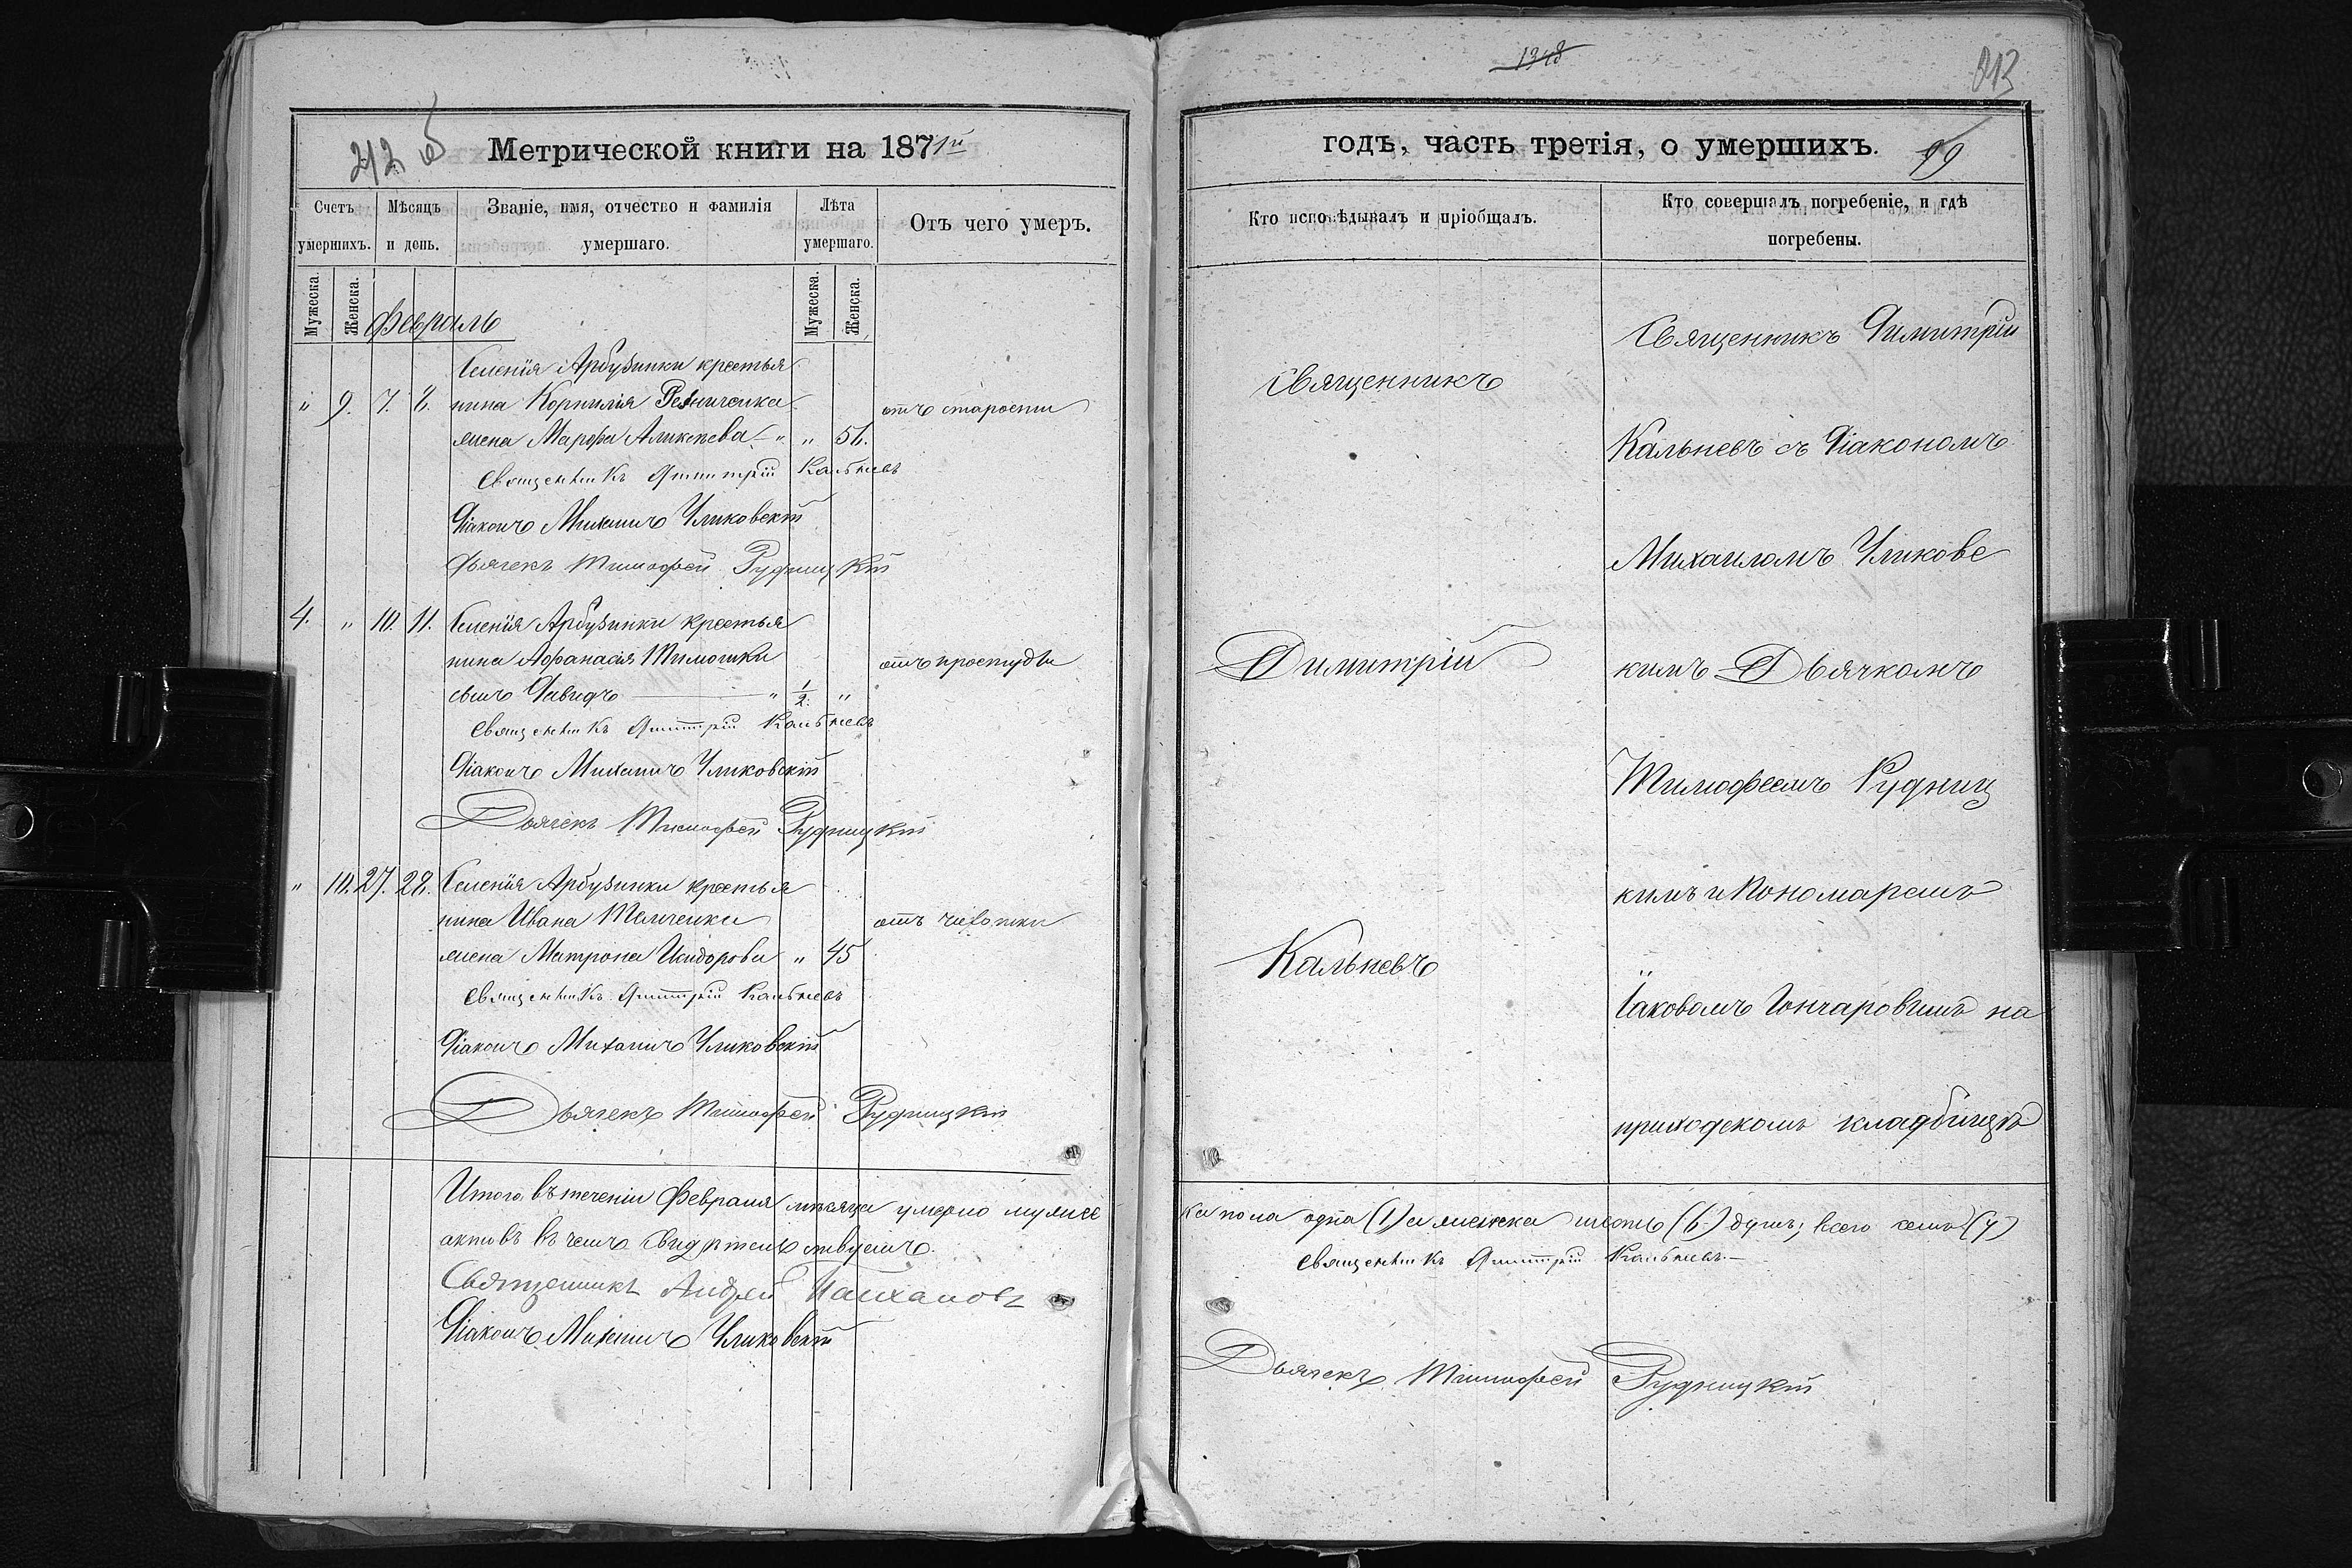 1348
813
212 об
Метрической книги на 1871й
годъ, часть третія, о умершихъ.
99
Счетъ умершихъ.
Мѣсяцъ и день.
Званіе, имя, отчество и фамилія умершаго.
Лѣта умершаго.
Отъ чего умеръ.
Мужеска.
Женска.
Мужеска.
Женска.
Февраль
Селенія Арбузинки крестья
" 9. 7. 8. нина Корнилія Резниченка отъ старости
жена Марфа Алексіева " " 51.
Священникъ Димитрій Кальневъ
Діаконъ Михаилъ Уликовскій
Дьячекъ Тимофей Рудницкій
4. " 10. 11. Селенія Арбузинки крестья
нина Афанасія Тимошки отъ простуды
сынъ Давидъ " 1/2. "
Священникъ Димитрій Кальневъ
Діаконъ Михаилъ Уликовскій
Дьячекъ Тимофей Рудницкій
" 10. 27. 28. Селенія Арбузинки крестья
нина Ивана отъ чахотки
жена Матрона Исидорова " 45
Священникъ Димитрій Кальневъ
Діаконъ Михаилъ Уликовскій
Дьячекъ Тимофей Рудницкій
Итого въ теченіи Февраля мѣсяца умерло мужес
актовъ въ чемъ свидѣтельствуемъ.
Священникъ Андрей
Діаконъ Михаилъ Уликовскій
Кто исповѣдывалъ и пріобщалъ.
Кто совершалъ погребеніе, и гдѣ погребены.
Священникъ
Димитрій
Кальневъ
Священникъ Димитрій
Кальневъ съ Діакономъ
Михаиломъ Уликовс
кимъ Дьячкомъ
Тимофеемъ Рудниц
кимъ и Пономаремъ
Іаковомъ Гончаровымъ на
приходскомъ кладбищѣ
ка пола одна (1) а женска шесть (6) душъ; всего семь (7)
Священникъ Димитрій Кальневъ.
Дьячекъ Тимофей Рудницкій